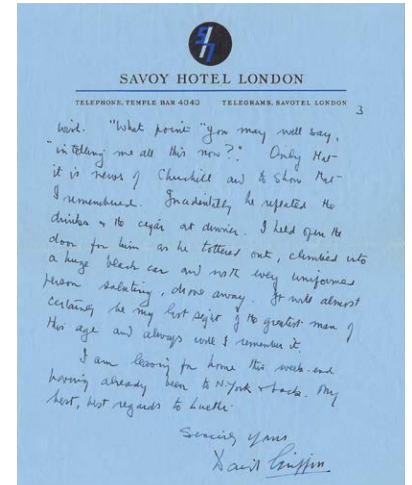 SAVOY HOTEL LONDON
TELEPHONE, TEMPLE BAR 4343 TELEGRAMS, SAVOTEL LONDON
3
"What point" "you may well say,
"in telling me all this now?". Only that
it is news of Churchill and to show that
I remembered. Incidentally he repeated the
drinks & the cigar at dinner. I held open the
door for him as he tottered out, climbed into
a huge black car and with every uniformed
person saluting, drove away. It will almost
certainly be my last sight of the greatest man of
this age and always will I remember it.
I am leaving for home this week-end
having already been to N.York & back. My
best, best regards to
Sincerely yours
David Griffin